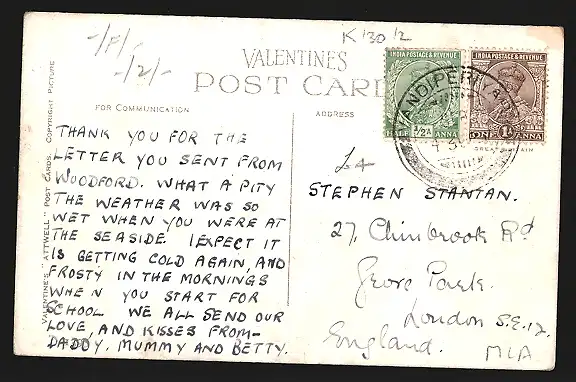 -/F/-
-/2/-
K 130 12
VALENTINES
POST CARD
FOR COMMUNICATION
ADDRESS
INDIA POSTAGE & REVENUE
HALF ½A ANNA
INDIA POSTAGE & REVENUE
ONE 1A ANNA
VALENTINE'S "ATTWELL" POST CARDS. COPYRIGHT PICTURE
THANK YOU FOR THE
LETTER YOU SENT FROM
WOODFORD. WHAT A PITY
THE WEATHER WAS SO
WET WHEN YOU WERE AT
THE SEASIDE. I EXPECT IT
IS GETTING COLD AGAIN, AND
FROSTY IN THE MORNINGS
WHEN YOU START FOR
SCHOOL WE ALL SEND OUR
LOVE, AND KISSES FROM-
DADDY, MUMMY AND BETTY.
STEPHEN STANTAN.
27, Chinbrook Rd
Grove Park.
London S.E.12.
England.
MLA